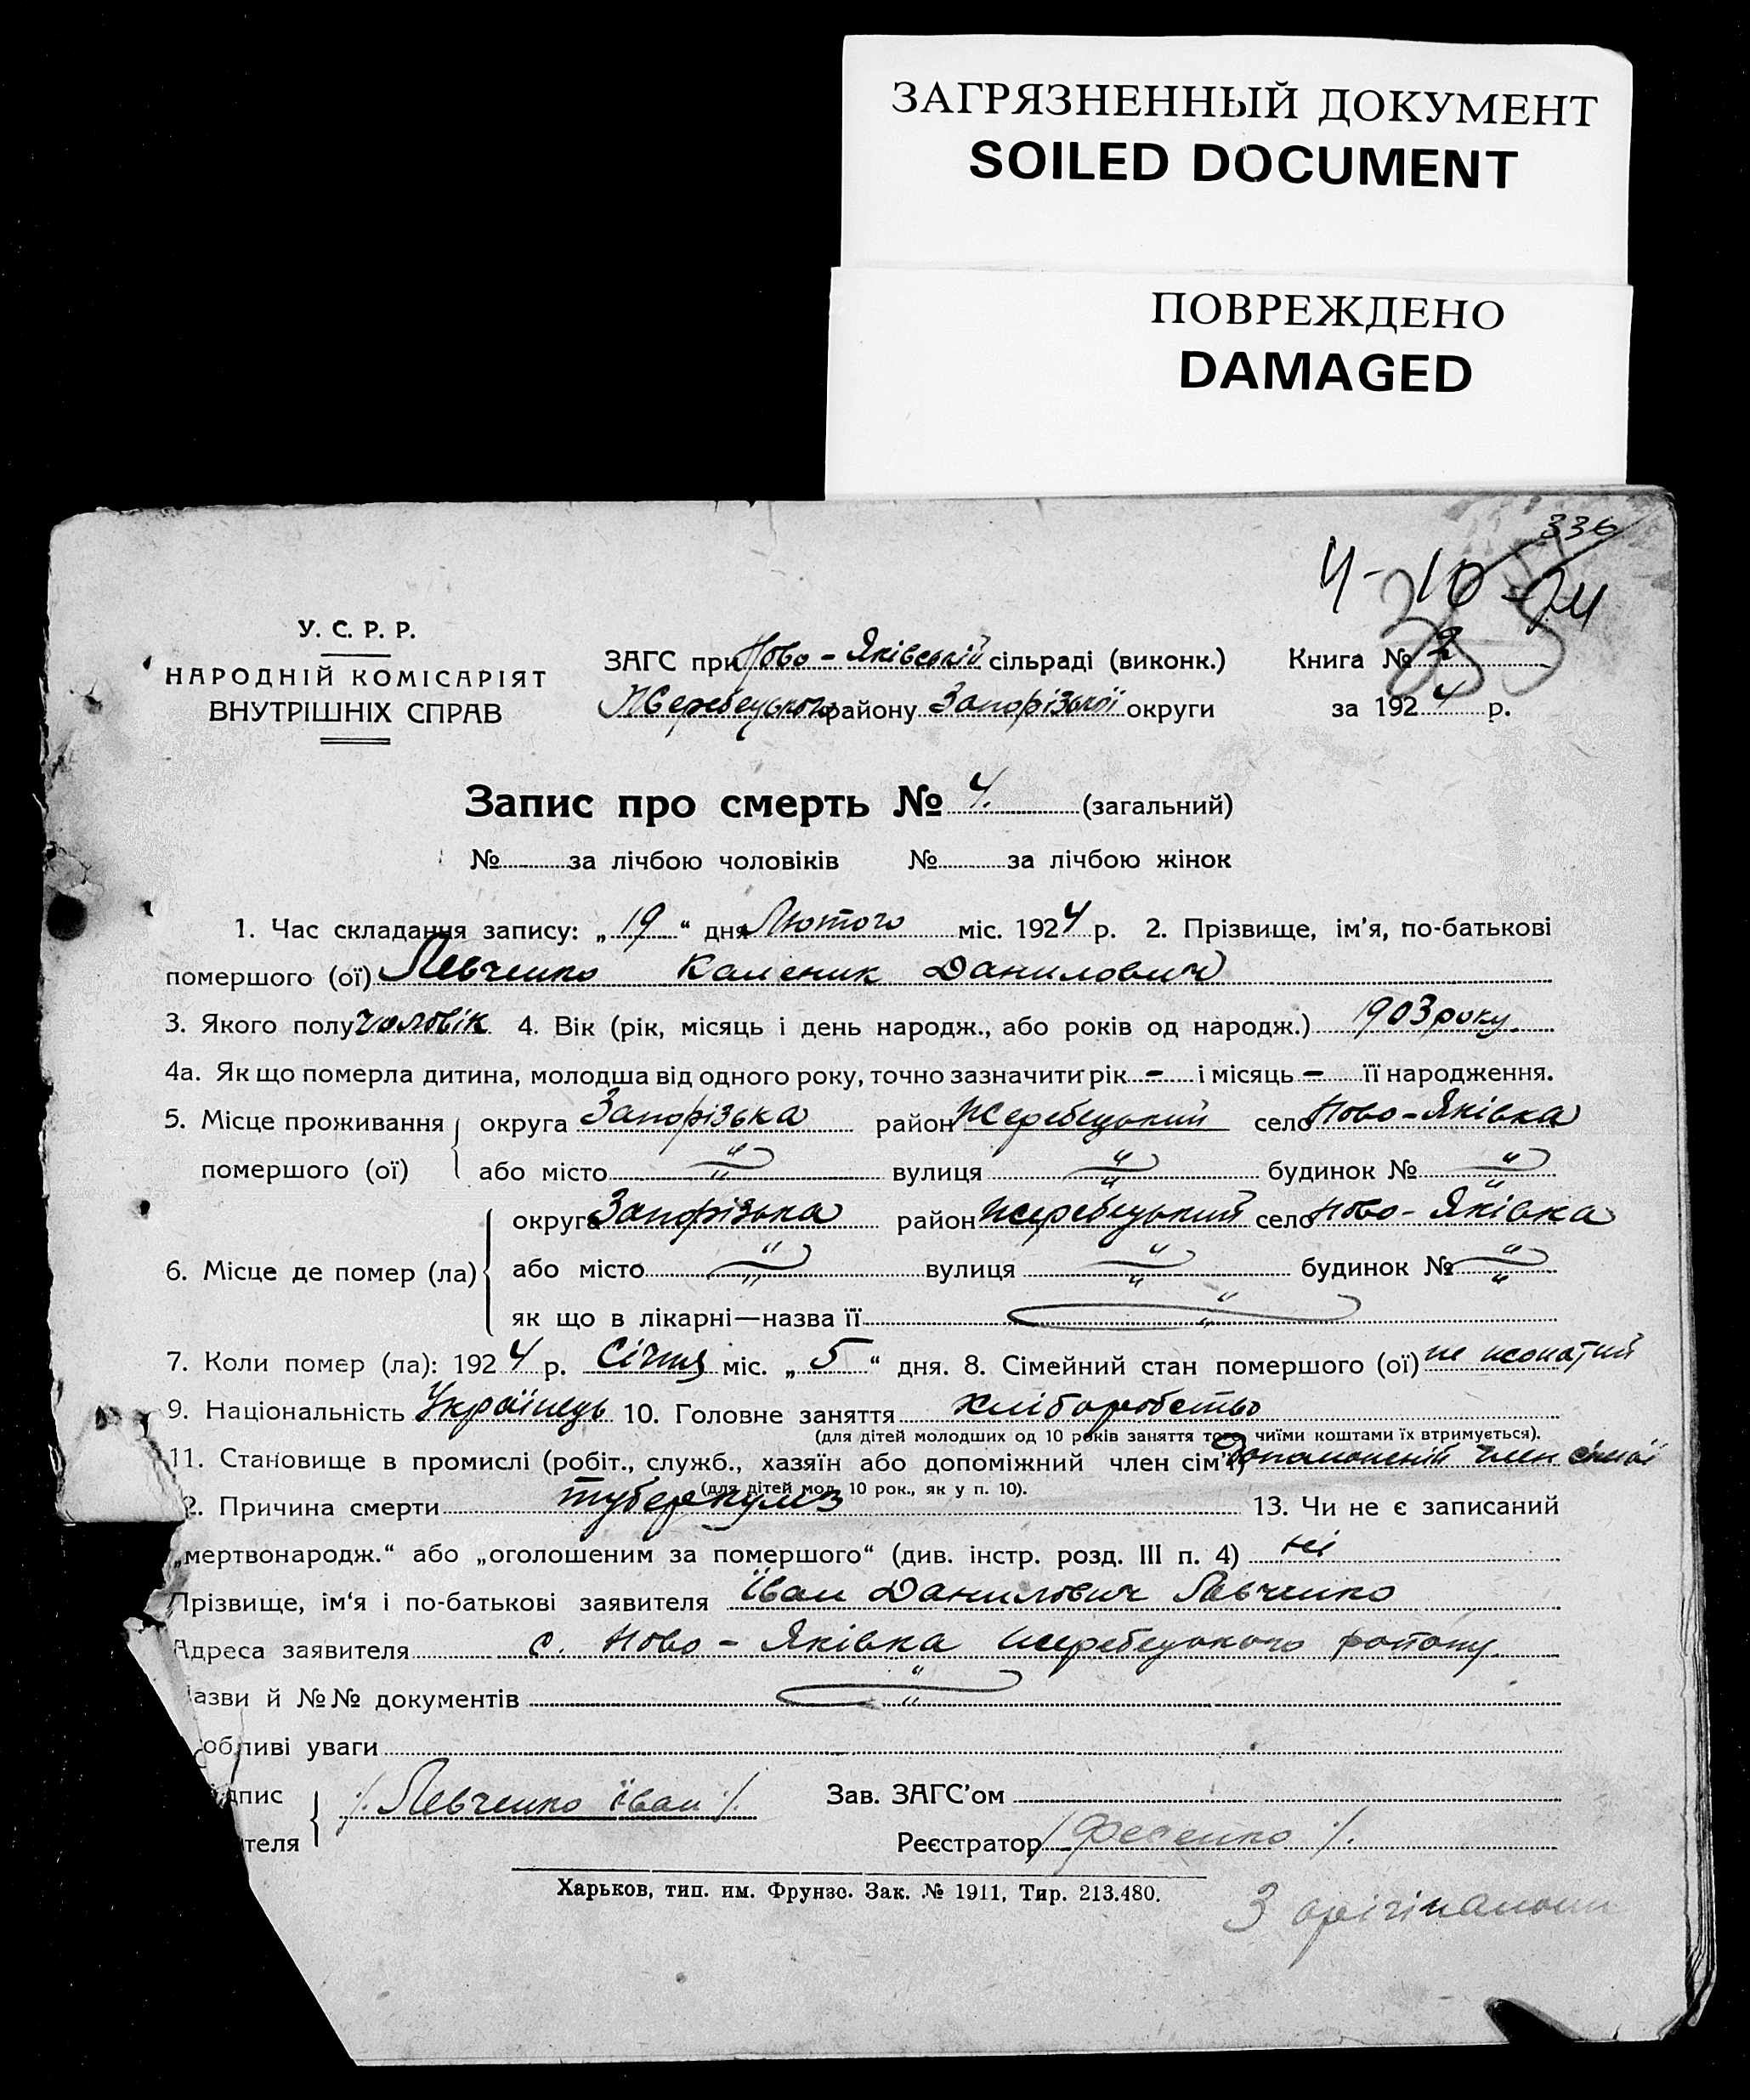 ЗАГРЯЗНЕННЫЙ ДОКУМЕНТ
SOILED DOCUMENT
ПОВРЕЖДЕНО
DAMAGED
336
4-10-24
35
У. С. Р. Р.
НАРОДНІЙ КОМІСАРІЯТ
ВНУТРІШНІХ СПРАВ
ЗАГС при Ново-Яківській сільраді (виконк.) Книга № 2
Жеребецького району Запорізької округи за 1924 р.
Запис про смерть № 4. (загальний)
№ за лічбою чоловіків № за лічбою жінок
1. Час складання запису: „19“ дня Лютого міс. 1924 р. 2. Прізвище, ім'я, по-батькові
помершого (ої) Левченко Каленик Данилович
3. Якого полу чоловік 4. Вік (рік, місяць і день народж., або років од народж.) 1903 року.
4а. Як що померла дитина, молодша від одного року, точно зазначити рік - і місяць - її народження.
5. Місце проживання помершого (ої) округа Запорізька район Жеребецький село Ново-Яківка
або місто " вулиця " будинок № "
6. Місце де помер (ла) округа Запорізька район Жеребецький село Ново-Яківка
або місто " вулиця " будинок № "
як що в лікарні—назва її "
7. Коли помер (ла): 1924 р. Січня міс. „5“ дня. 8. Сімейний стан помершого (ої) не жонатий
9. Національність Українець 10. Головне заняття хліборобство
(для дітей молодших од 10 років заняття того, чиїми коштами їх втримується).
11. Становище в промислі (робіт., служб., хазяїн або допоміжний член сім'ї) допоможній член сімьї
(для дітей мол. 10 рок., як у п. 10).
2. Причина смерти туберкульз 13. Чи не є записаний
„мертвонародж.“ або „оголошеним за помершого“ (див. інстр. розд. III п. 4) ні
Прізвище, ім'я і по-батькові заявителя Іван Данилович Левченко
Адреса заявителя с. Ново-Яківка Жеребецького району.
азви й №№ документів "
обливі уваги
дпис Левченко Іван Зав. ЗАГС'ом
теля Реєстратор Фесенко
Харьков, тип. им. Фрунзе. Зак. № 1911, Тир. 213.480.
З орігіналом